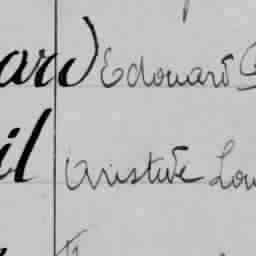 ard Edouard
il Aristide Lou